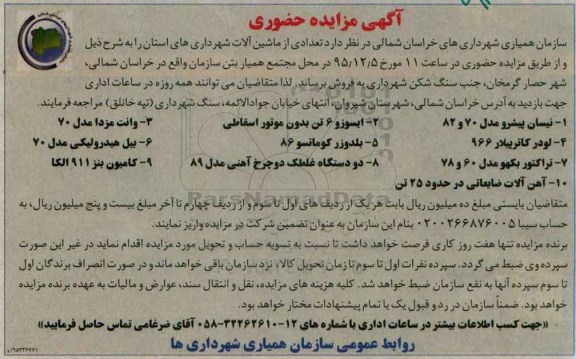 آگهی مزایده حضوری
سازمان همیاری شهرداری های خراسان شمالی در نظر دارد تعدادی از ماشین آلات شهرداری های استان را به شرح ذیل
و از طریق مزایده حضوری در ساعت ۱۱ مورخ ۹۵/۱۲/۵ در محل مجتمع همیار بتن سازمان واقع در خراسان شمالی،
شهر حصار گرمخان، جنب سنگ شکن شهرداری به فروش برساند. لذا متقاضیان می توانند همه روزه در ساعات اداری
جهت بازدید به آدرس خراسان شمالی، شهرستان شیروان، انتهای خیابان جوادالائمه، سنگ شهرداری (تپه خانلق) مراجعه فرمایند.
۱- نیسان پیشرو مدل ۷۰ و ۸۲ ۲- ایسوزو ۶ تن بدون موتور اسقاطی ۳- وانت مزدا مدل ۷۰
۴- لودر کاترپیلار 966 ۵- بلدوزر کوماتسو ۸۶ ۶- بیل هیدرولیکی مدل ۷۰
۷- تراکتور بکهو مدل ۶۰ و ۷۸ ۸- دو دستگاه غلطک دوچرخ آهنی مدل ۸۹ ۹- کامیون بنز ۹۱۱ الکا
۱۰- آهن آلات ضایعاتی در حدود ۲۵ تن
متقاضیان بایستی مبلغ ده میلیون ریال بابت هر یک از ردیف های اول تا سوم و از ردیف چهارم تا آخر مبلغ بیست و پنج میلیون ریال، به
حساب سیبا ۰۲۰۰۲۶۶۸۷۶۰۰۵ بنام این سازمان به عنوان تضمین شرکت در مزایده واریز نمایند.
برنده مزایده تنها هفت روز کاری فرصت خواهد داشت تا نسبت به تسویه حساب و تحویل مورد مزایده اقدام نماید در غیر این صورت
سپرده وی ضبط می گردد. سپرده نفرات اول تا سوم تا زمان تحویل کالا، نزد سازمان باقی خواهد ماند و در صورت انصراف برندگان اول
تا سوم سپرده آنها به نفع سازمان ضبط خواهد شد. کلیه هزینه های مزایده، نقل و انتقال سند، عوارض و مالیات به عهده برنده مزایده
خواهد بود. ضمناً سازمان در رد و قبول یک یا تمام پیشنهادات مختار خواهد بود.
«جهت کسب اطلاعات بیشتر در ساعات اداری با شماره های ۱۲-۳۲۲۶۲۶۱۰-۰۵۸ آقای ضرغامی تماس حاصل فرمایید»
روابط عمومی سازمان همیاری شهرداری ها